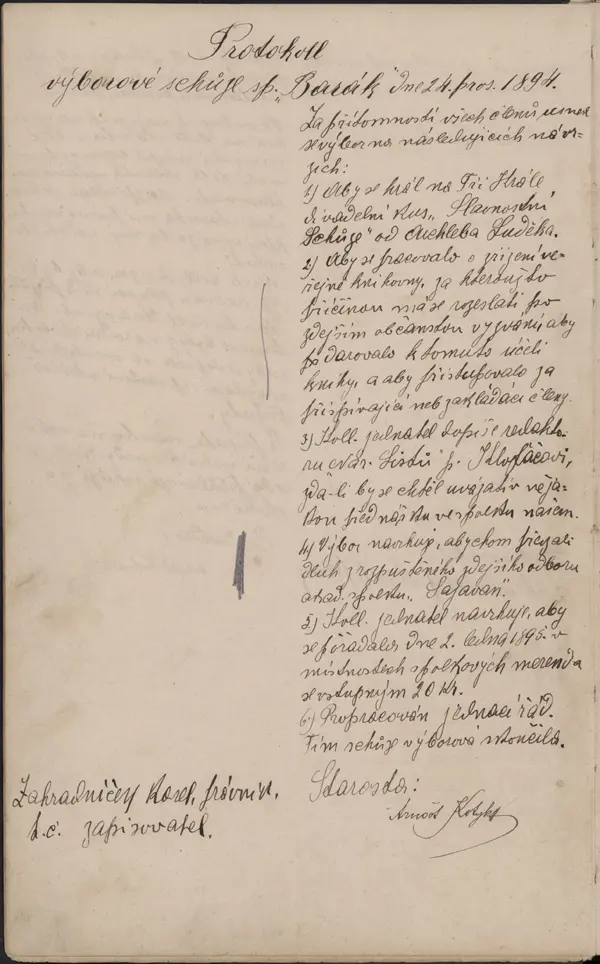 Protokoll
výborové schůze sp. „Barák" dne 24. pros. 1894.
Za přítomnosti všech členů usnesl
se výbor na následujících návr-
zích:
1) Aby se hrál na Tři Krále
divadelní kus „Slavnostní
Schůze" od Archleba Luděka.
2) Aby se pracovalo o zřízení ve-
řejné knihovny, za kteroužto
příčinou má se rozeslati po
zdejším občanstvu vyzvání, aby
darovalo k tomuto účeli
knihy, a aby přistupovalo za
přispívající neb zakládací členy.
3) Koll. jednatel dopíše redakto-
ru „Nár. Listů" p. Klofáčovi,
zda-li by se chtěl uvázati v něja-
kou přednášku ve spolku našem.
4) Výbor navrhuje, abychom přejali
dluh z rozpuštěného zdejšího odboru
akad. spolku „Sázavan".
5) Koll. jednatel navrhuje, aby
se pořádala dne 2. ledna 1895. v
místnostech spolkových merenda
se vstupným 20 kr.
6) Propracován jednací řád.
Tím schůze výborová skončila.
Starosta:
Arnošt Kotyk
Zahradníček Karel, právník,
t. č. zapisovatel.